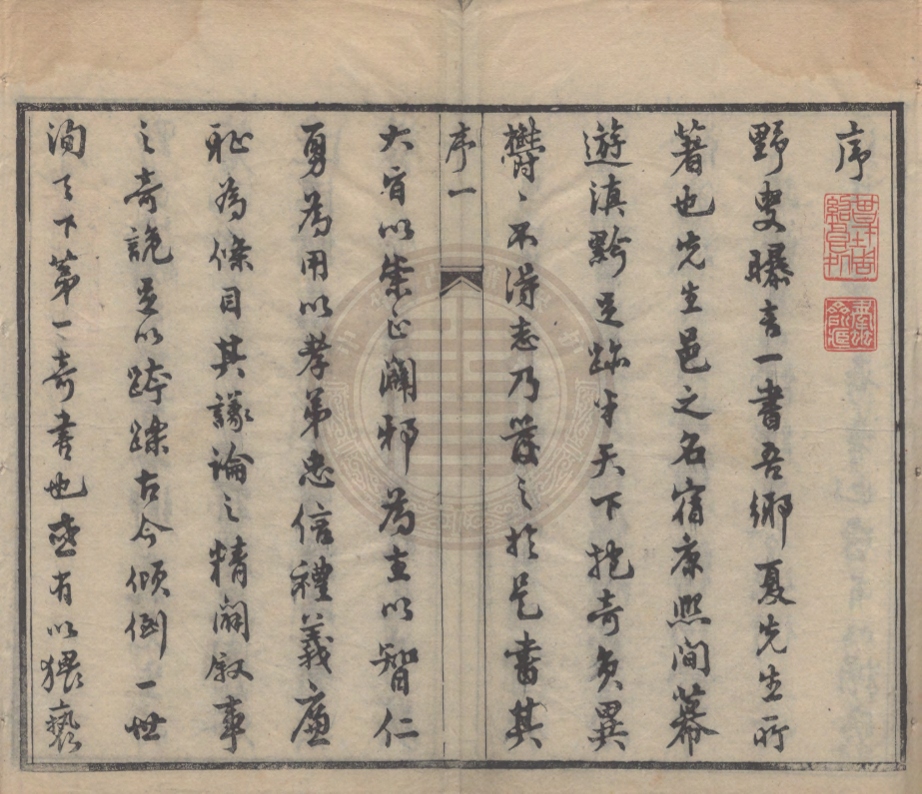 序
野叟曝言一書吾鄉夏先生所
著也先生邑之名宿康熙間幕
遊滇黔足跡半天下抱奇負異
鬱〻不得志乃發之於是書其
序一
大旨以崇正闢邪為主以智仁
勇為用以孝弟忠信禮義廉
恥為條目其議論之精闢敘事
之奇詭足以跨躒古今傾倒一世
洵天下第一奇書也或有以猥褻